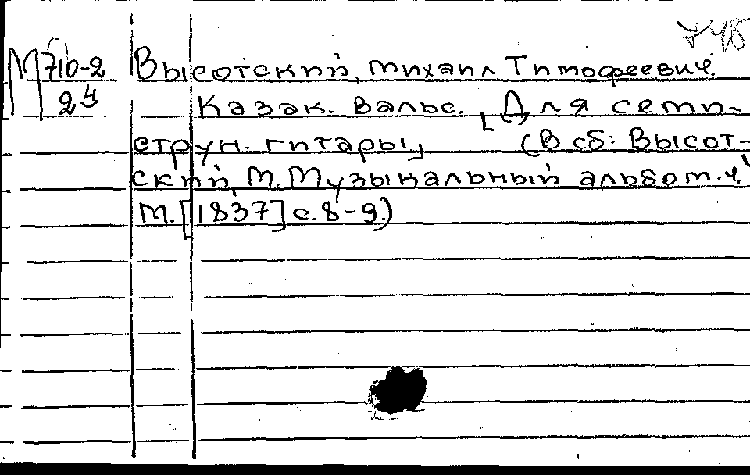 748
М 710-2 Высотский, Михаил Тимофеевич.
24 Казак. Вальс. [Для семи-
струн. гитары] (В сб: Высот-
ский, М. Музыкальный альбом. ч.1
М. [1837] с. 8-9)